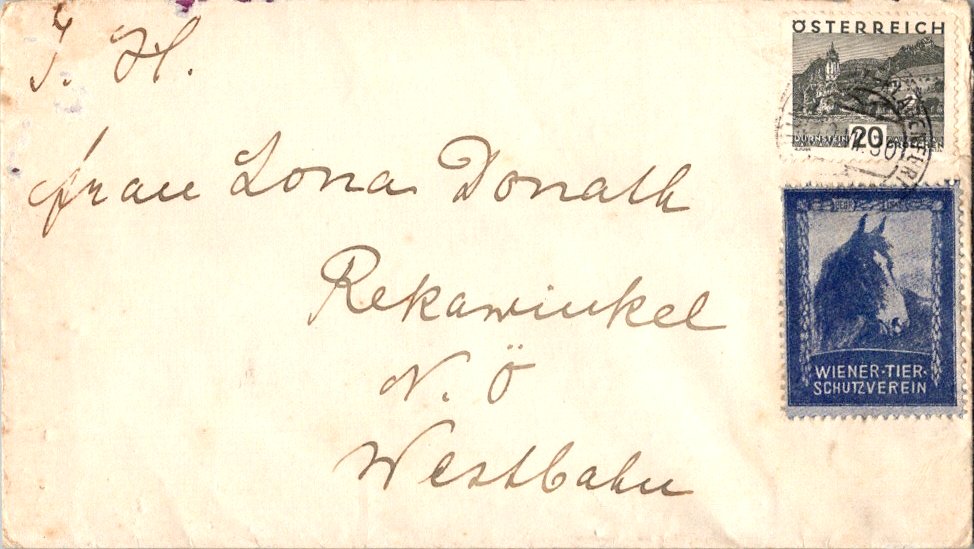 I. H.
Frau Lona Donath
Rekawinkel
N. Ö
Westbahn
ÖSTERREICH
DÜRNSTEIN 20 GROSCHEN
WIENER-TIER-
SCHUTZVEREIN